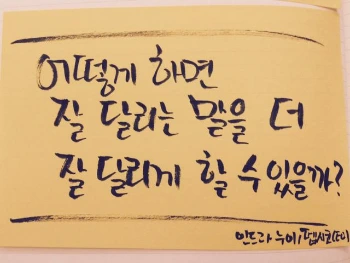 어떻게 하면
잘 달리는 말을 더
잘 달리게 할 수 있을까?
인드라 누이/펩시코